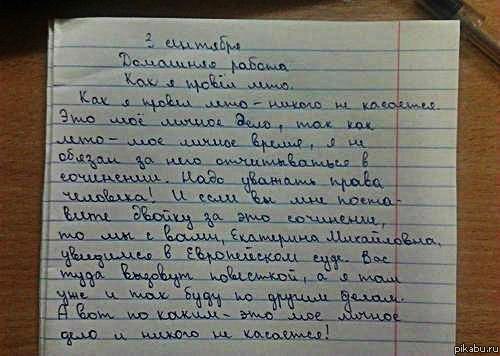 3 сентября
Домашняя работа
Как я провёл лето.
Как я провёл лето – никого не касается.
Это моё личное дело, так как
лето – мое личное время, я не
обязан за него отчитываться в
сочинении. Надо уважать права
человека! И если вы мне поста-
вите двойку за это сочинение,
то мы с вами, Екатерина Михайловна,
увидимся в Европейском суде. Вас
туда вызовут повесткой, а я там
уже и так буду по другим делам.
А вот по каким – это мое личное
дело и никого не касается!
pikabu.ru